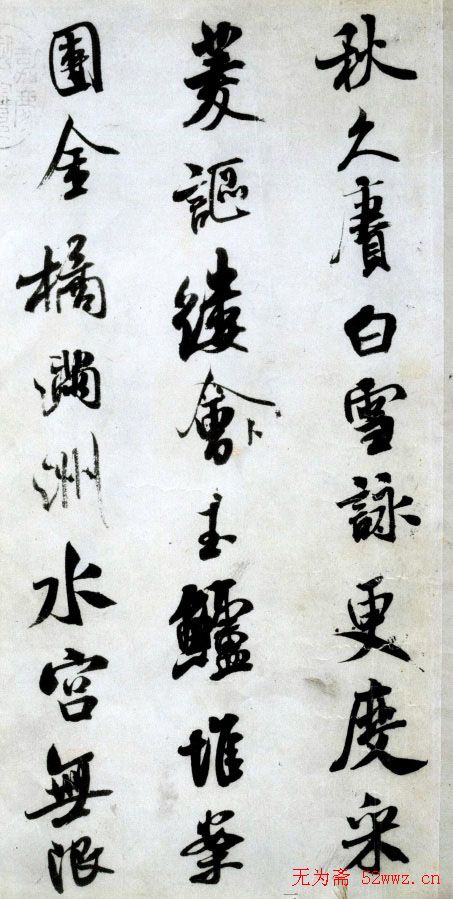 秋久賡白雪詠更度采
菱謳縷會玉鱸堆案
團金橘滿洲水宮無限
无为斋 52wwz.cn